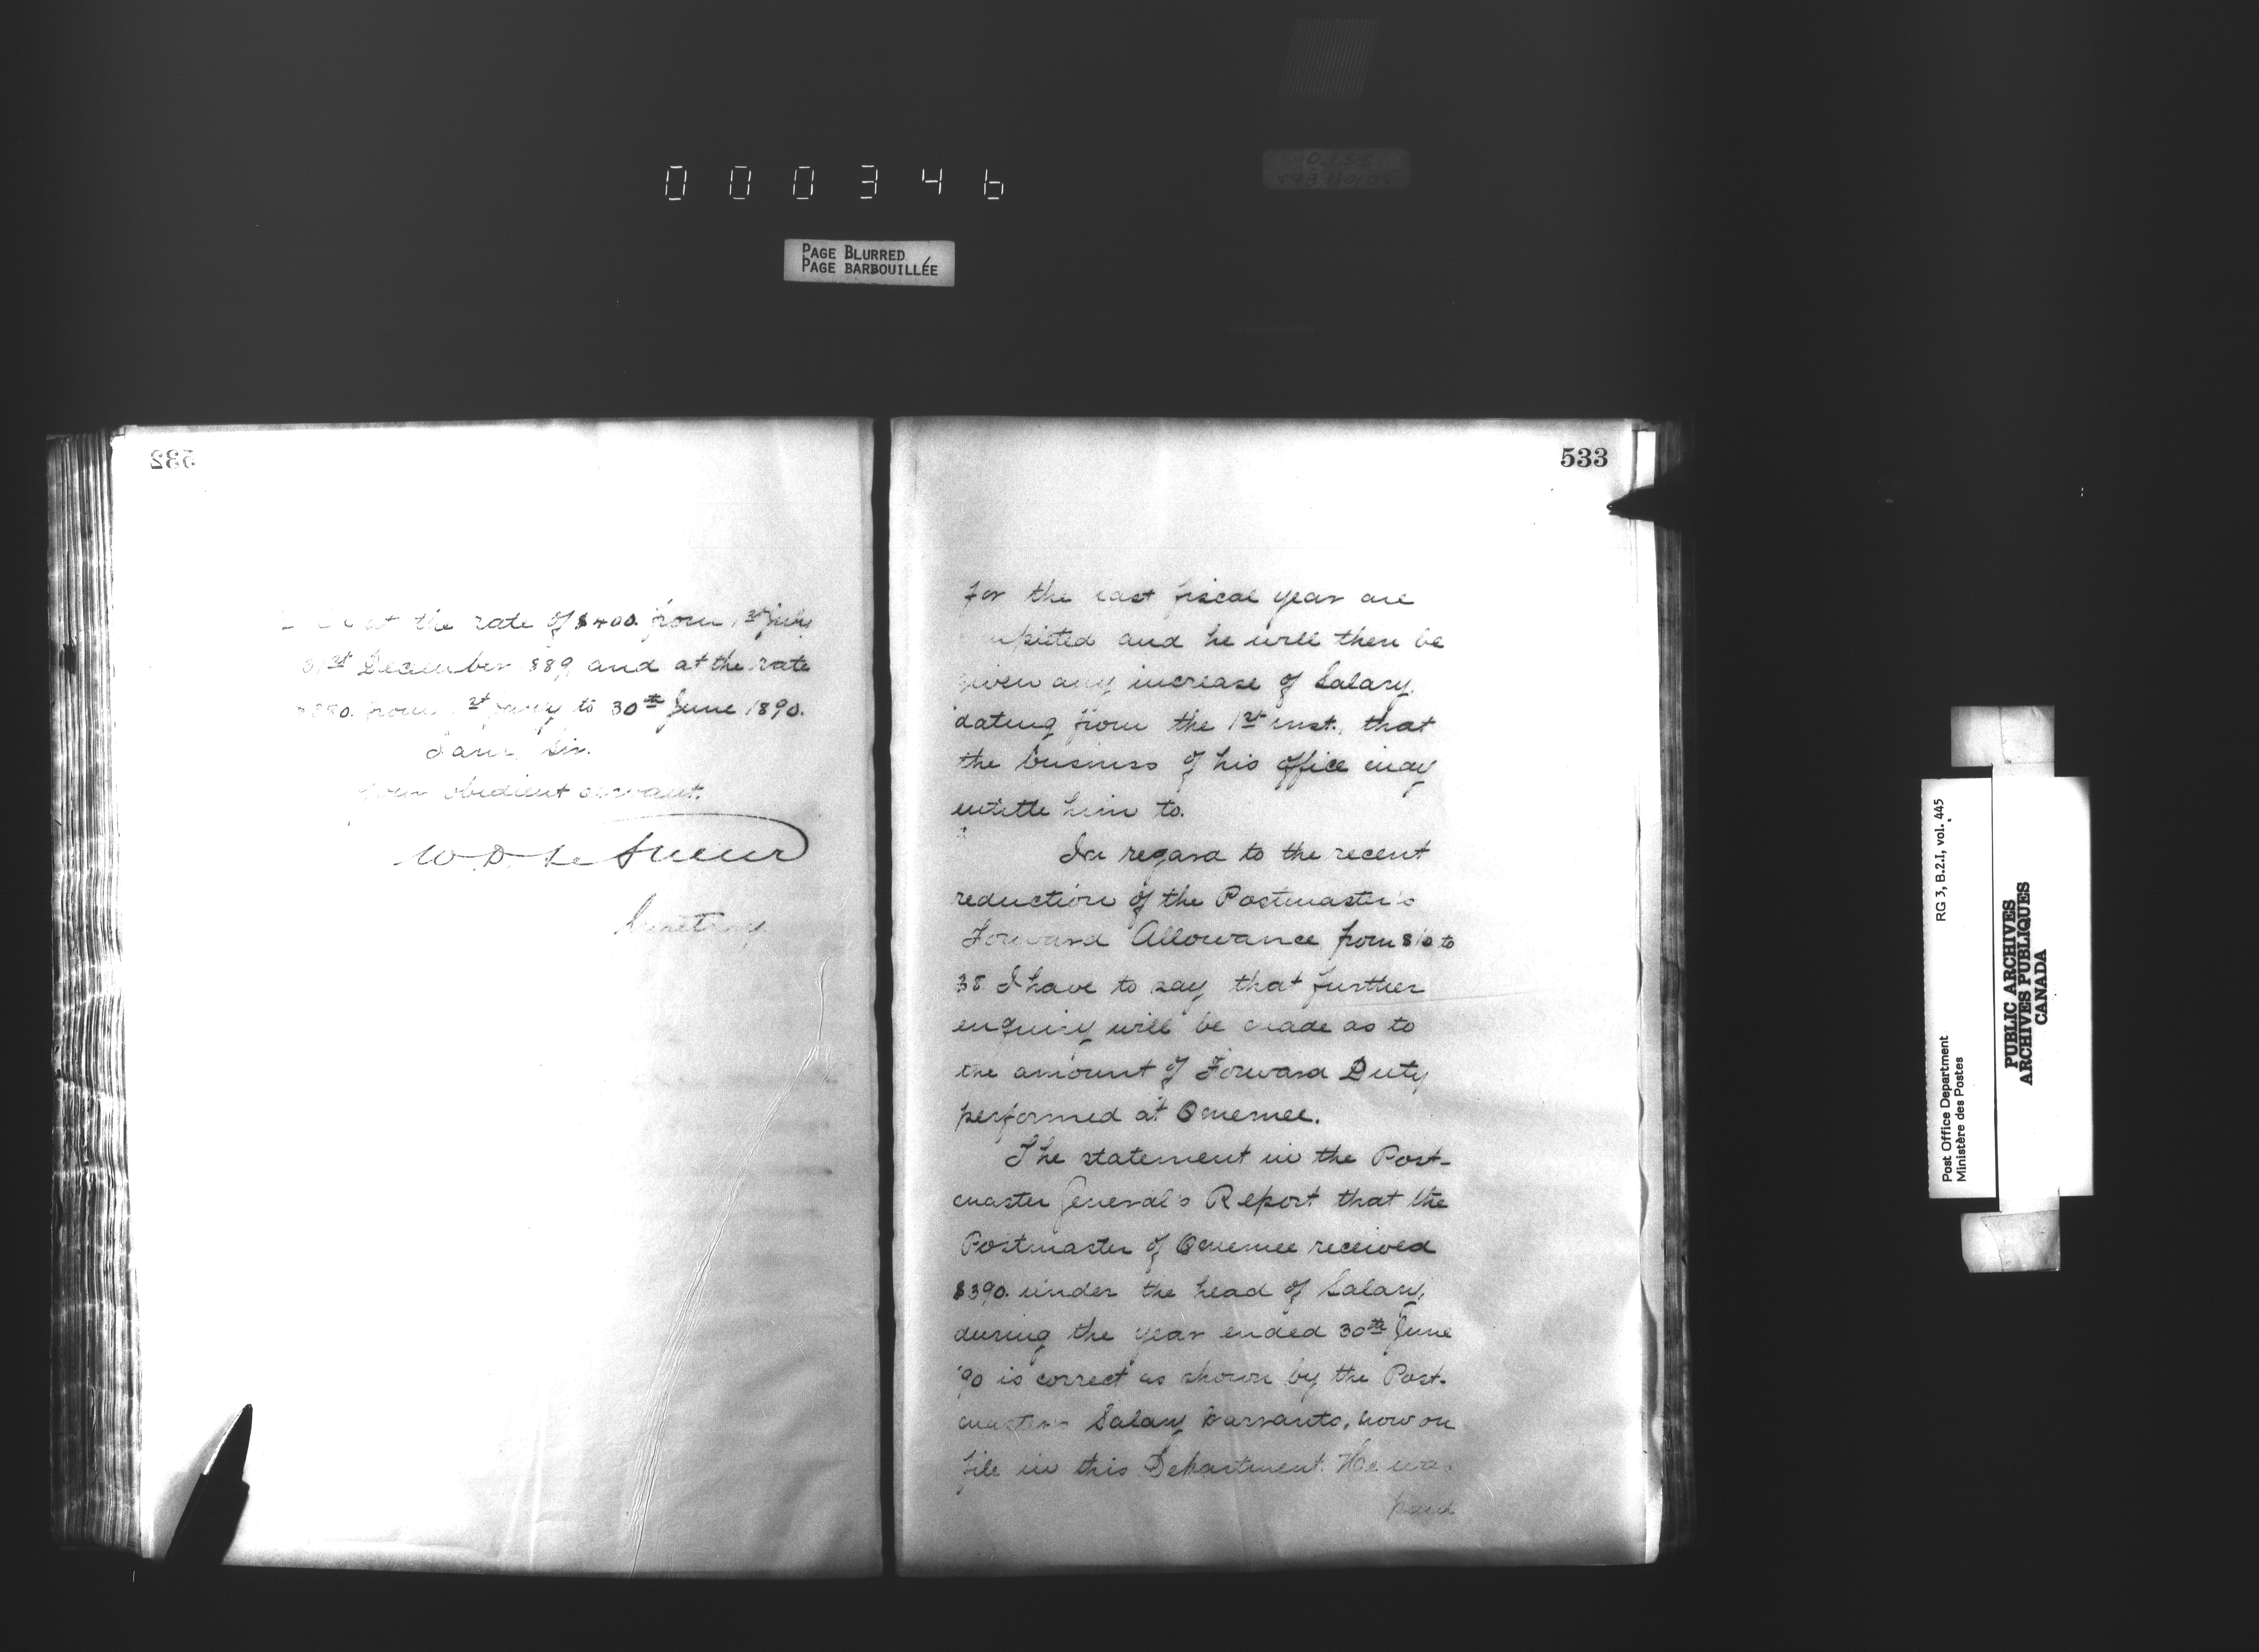 000346
PAGE BLURRED
PAGE BARBOUILLÉE
532
at the rate of $400. from 1st July
31st December 1889 and at the rate
from 1st Jany to 30th June 1890.
I am, Sir.
Your obedient servant.
W. D. Le Sueur
Secretary.
533
for the last fiscal year are
and he will then be
given any increase of Salary,
dating from the 1st inst., that
the business of his office may
entitle him to.
In regard to the recent
reduction of the Postmaster's
Forward Allowance from $10 to
$8. I have to say that further
enquiry will be made as to
the amount of Forward Duty
performed at Omemee.
The statement in the Post-
master General's Report that the
Postmaster of Omemee received
$390. under the head of Salary,
during the year ended 30th June
'90 is correct as shown by the Post-
masters Salary Warrants, now on
file in this Department. He was
paid
RG 3, B.2.I, vol. 445
Post Office Department
Ministère des Postes
PUBLIC ARCHIVES
ARCHIVES PUBLIQUES
CANADA